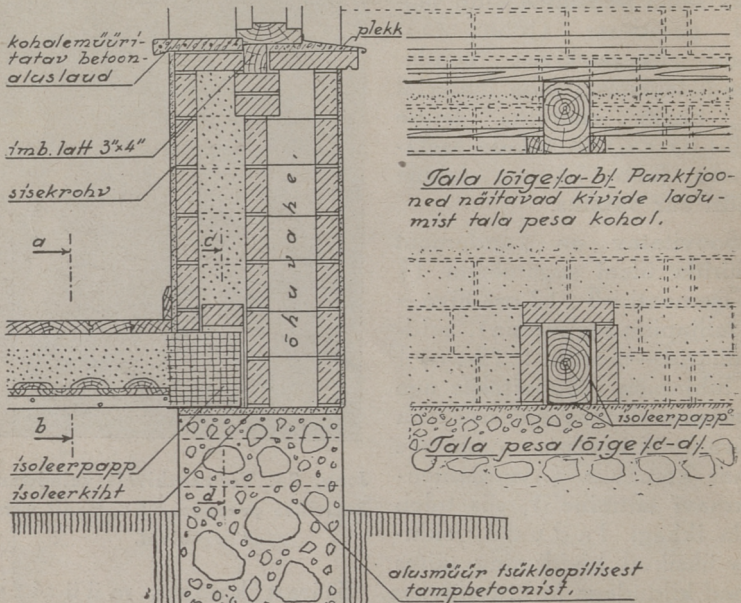 kohalemüüri-
tatav betoon-
aluslaud
plekk
imb. latt 3"x4"
sisekrohv
a
c
õhuvahe.
b
isoleerpapp
isoleerkiht
d
alusmüür tsükloopilisest
tampbetoonist.
Tala lõige /a-b/. Punktjoo-
ned näitavad kivide ladu-
mist tala pesa kohal.
isoleerpapp
Tala pesa lõige /d-d/.